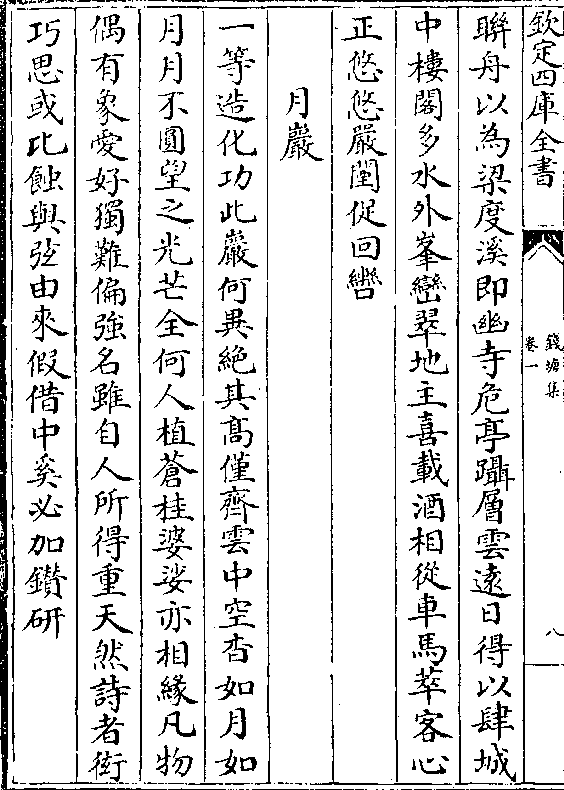 欽定四庫全書
錢塘集
卷一
八
聯舟以為梁度溪即幽寺危亭躡層雲遠目得以肆城
中樓閣多水外峯巒翠地主喜載酒相從車馬萃客心
正悠悠嚴闉促回轡
月巖
一等造化功此巖何異絶其髙僅齊雲中空杳如月如
月月不圓望之光芒全何人植蒼桂婆娑亦相緣凡物
偶有象愛好獨難偏強名雖自人所得重天然詩者衒
巧思或比蝕與弦由來假借中奚必加鑽研